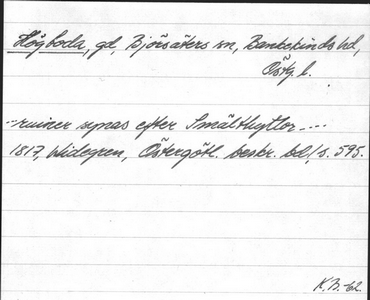 Högboda, gd, Björsäters sn, Bankekinds hd,
Östg. l.
--ruiner synas efter Smälthyttor----
1817, Widegren, Östergötl. beskr. bd 1 s. 595.
K.B-bl.